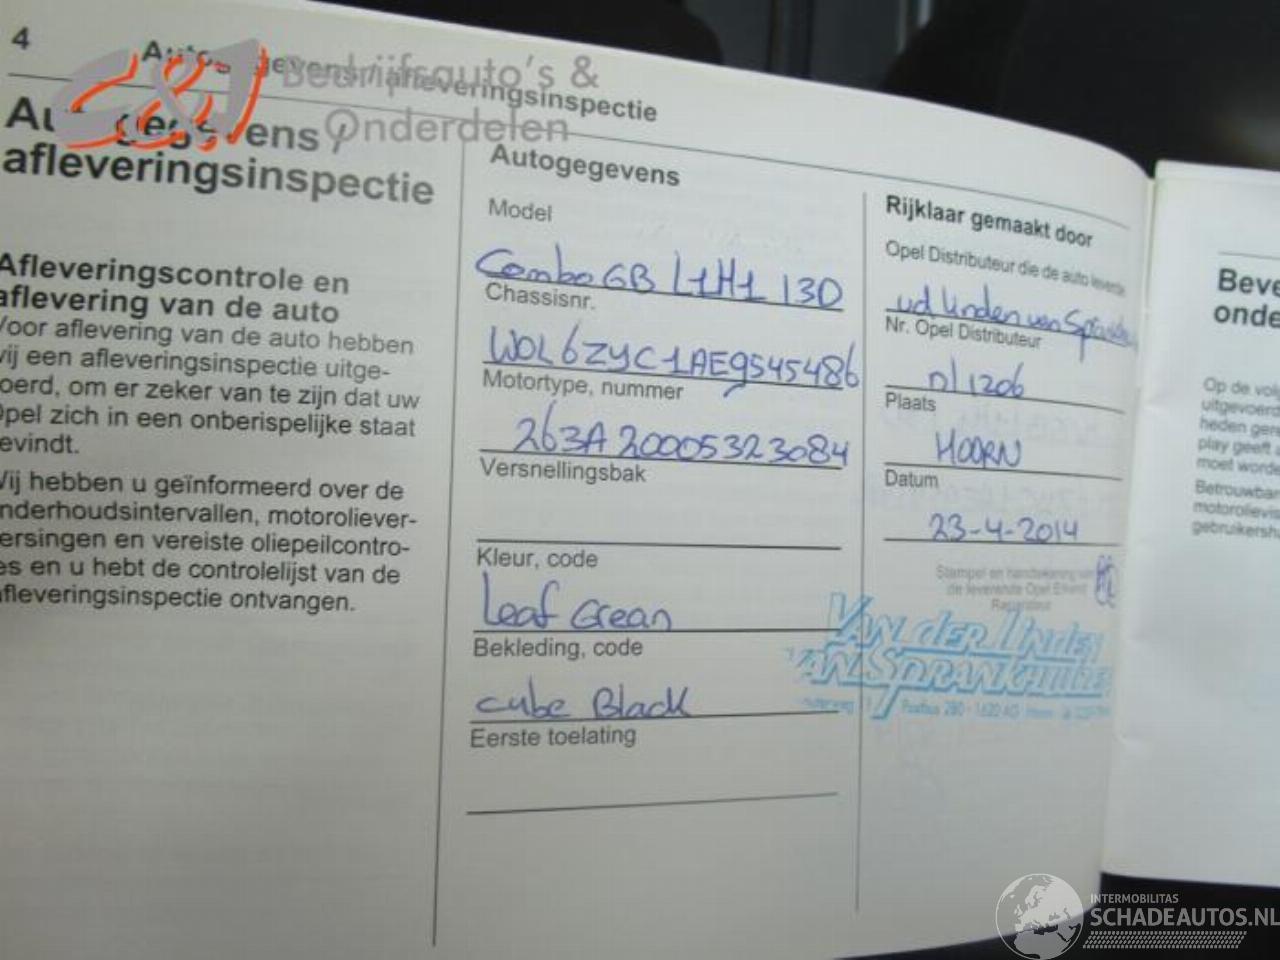 4
Autogegevens / afleveringsinspectie
C&J Bedrijfsauto's &
Onderdelen
Autogegevens /
afleveringsinspectie
Afleveringscontrole en
aflevering van de auto
Voor aflevering van de auto hebben
wij een afleveringsinspectie uitge-
voerd, om er zeker van te zijn dat uw
Opel zich in een onberispelijke staat
bevindt.
Wij hebben u geïnformeerd over de
onderhoudsintervallen, motoroliever-
versingen en vereiste oliepeilcontro-
les en u hebt de controlelijst van de
afleveringsinspectie ontvangen.
Autogegevens
Model
Combo GB L1H1 13D
Chassisnr.
W0L6ZYC1AE9545486
Motortype, nummer
263A20005323084
Versnellingsbak
Kleur, code
Leaf Green
Bekleding, code
cube Black
Eerste toelating
Rijklaar gemaakt door
Opel Distributeur die de auto leverde
vd Linden van Sprankhuizen
Nr. Opel Distributeur
nl 1206
Plaats
HOORN
Datum
23-4-2014
Stempel en handtekening van
de leverende Opel Erkend
Reparateur
VAN DER LINDEN
VAN SPRANKHUIZEN
Postbus 280 - 1620 AG Hoorn
Beve
onde
Op de vol
uitgevoerd
heden gere
play geeft u
moet worde
Betrouwbar
motorolievis
gebruikersha
INTERMOBILITAS
SCHADEAUTOS.NL